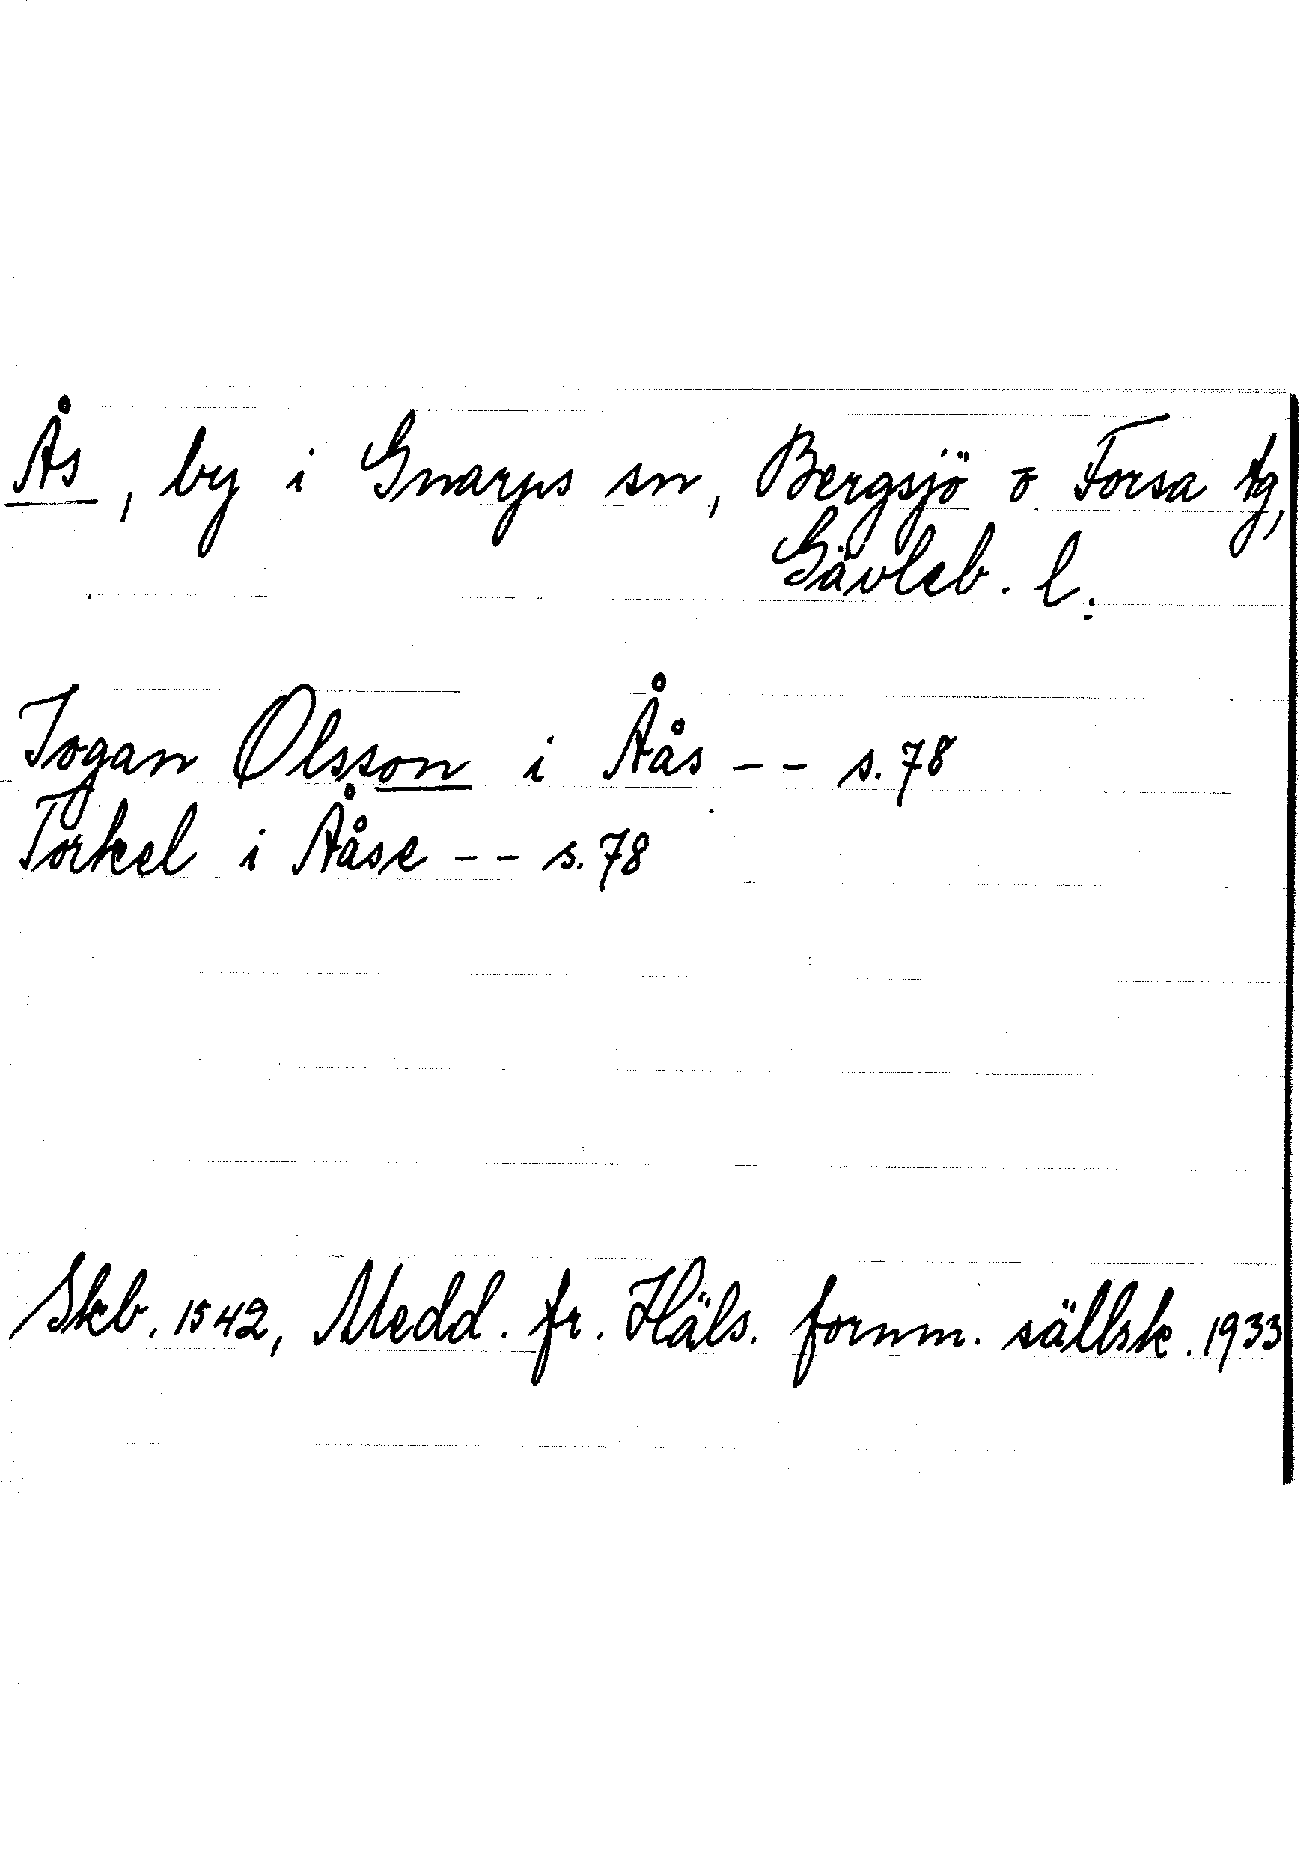 Ås, by i Gnarps sn, Bergsjö o Forsa tg,
Gävleb. l.
Jogan Olsson i Åås -- s. 78
Torkel i Ååse -- s. 78
Skb. 1542, Medd. fr. Häls. fornm. sällsk. 1933